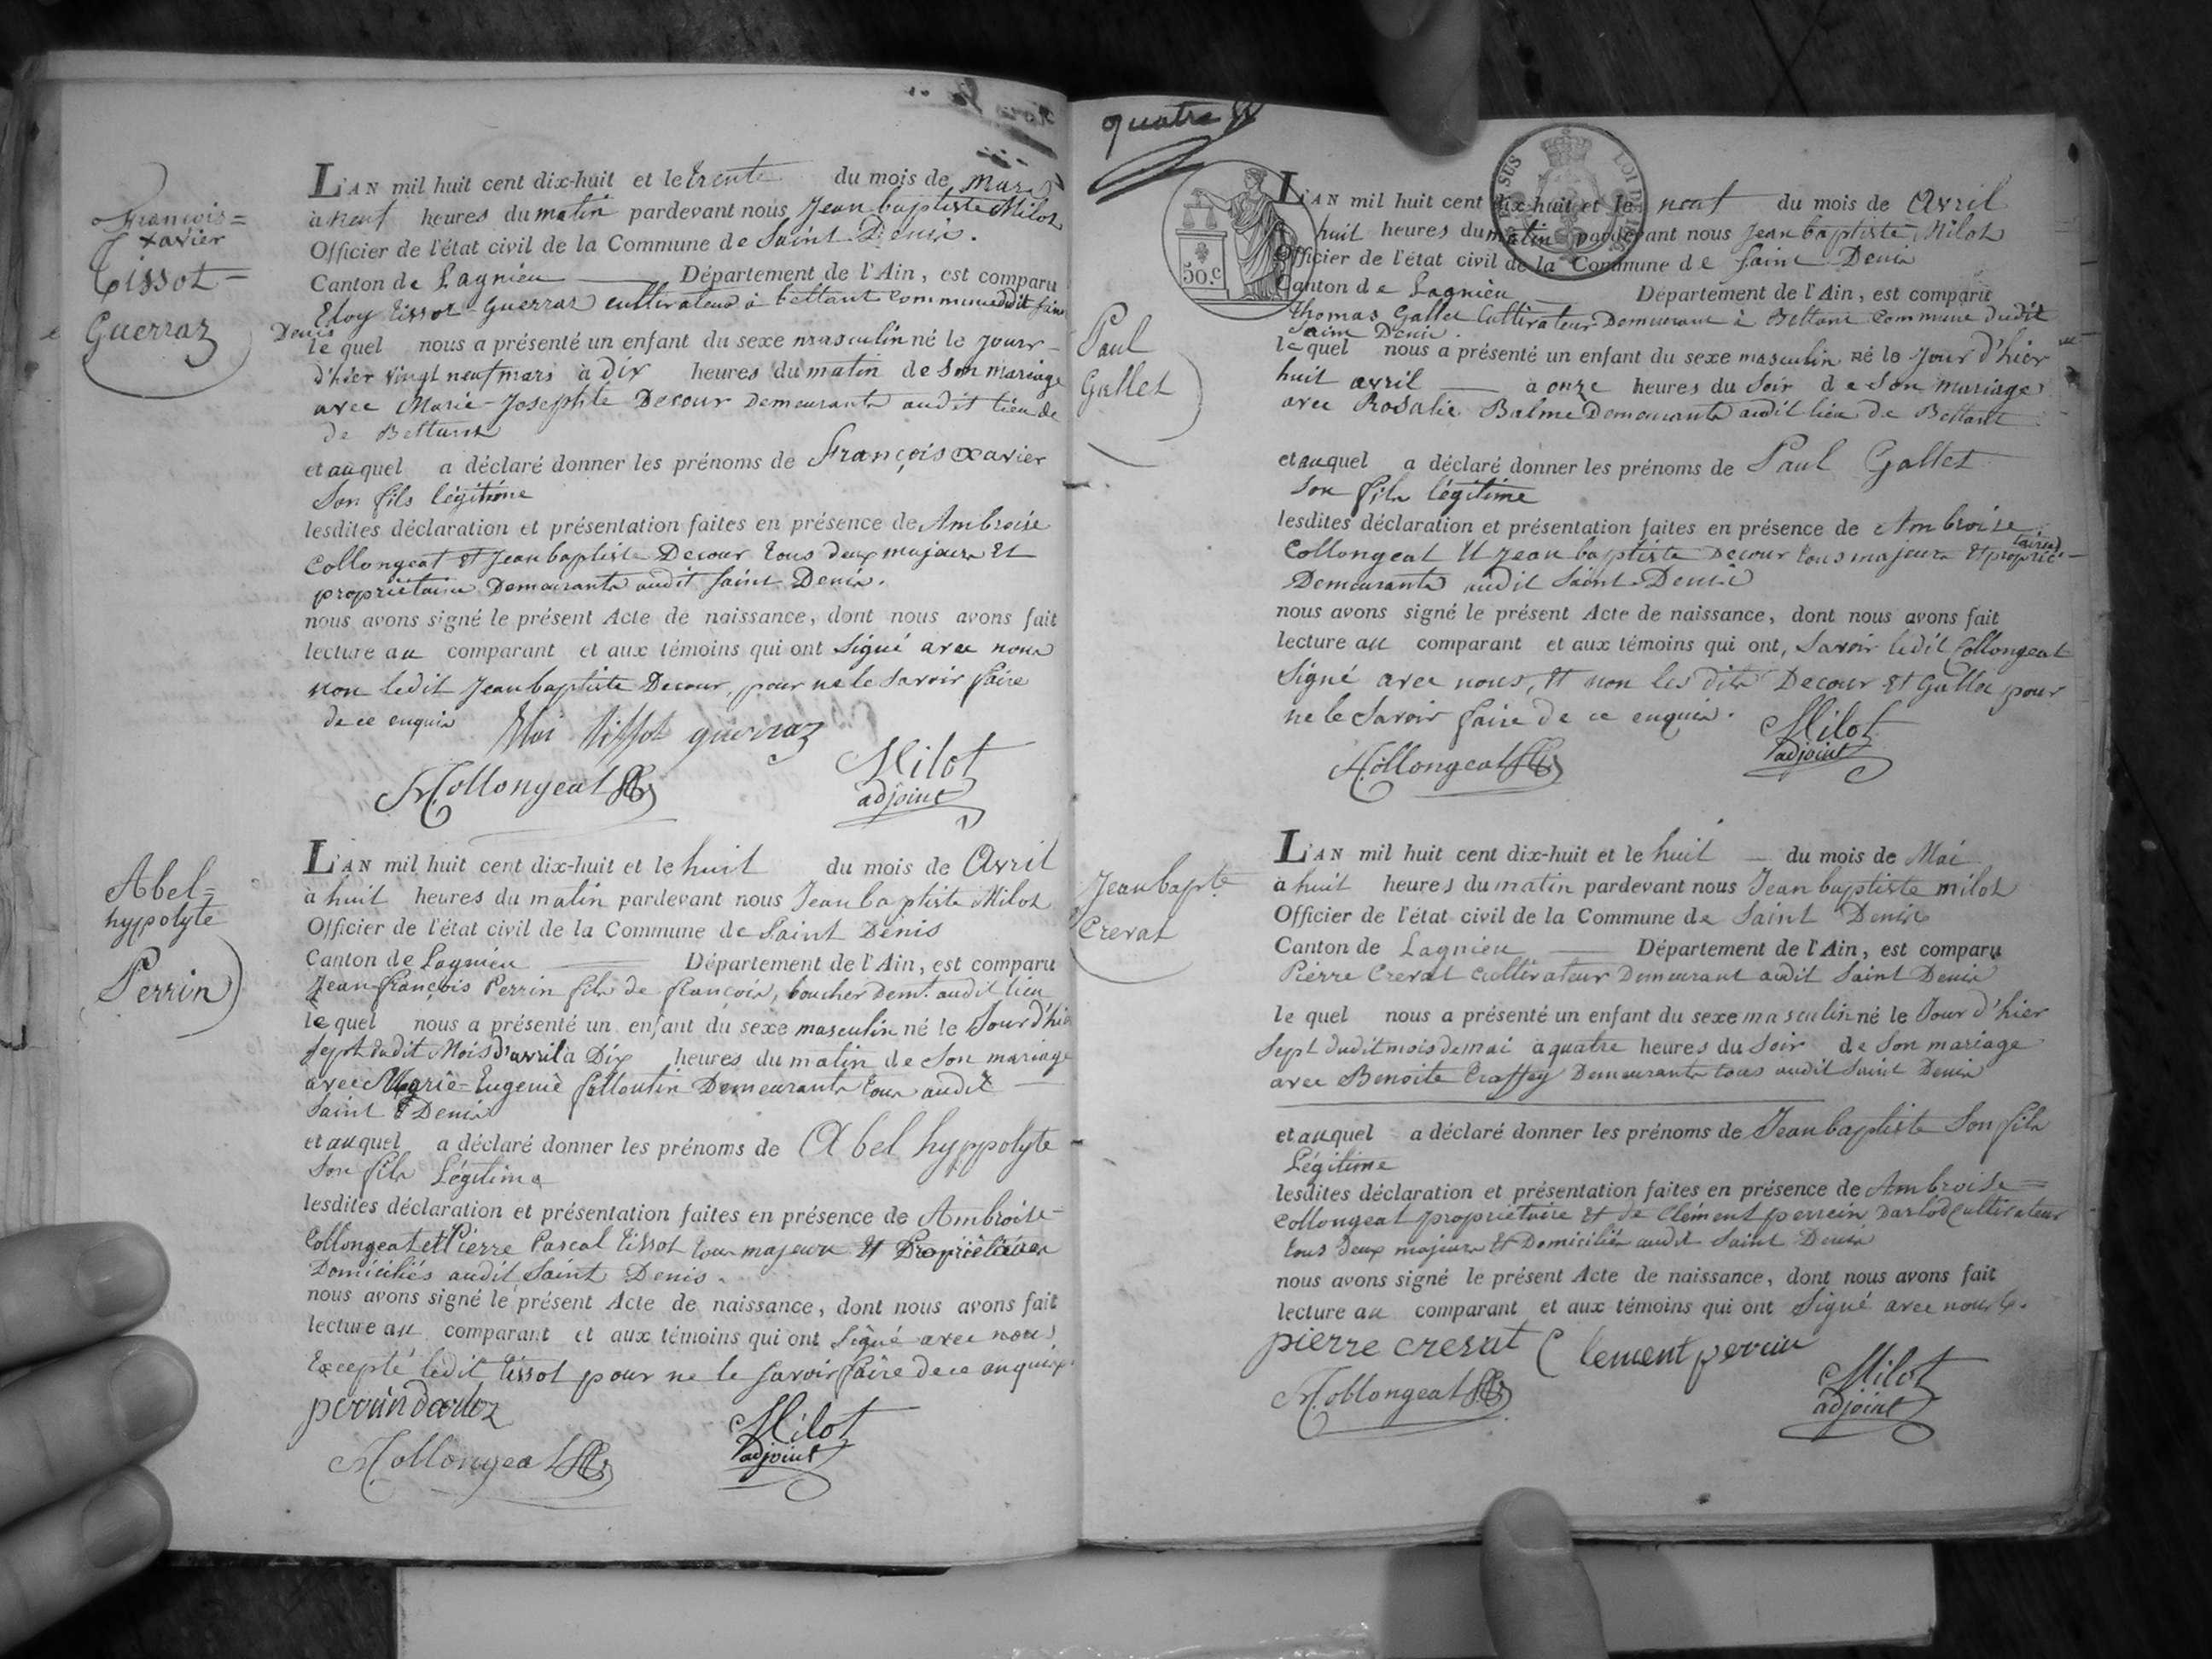 François=
xavier
Tissot=
Guerraz
L'AN mil huit cent dix-huit et le trente du mois de mars
à neuf heures du matin pardevant nous Jean baptiste Milot
Officier de l'état civil de la Commune de Saint Denis.
Canton de Lagnieu Département de l'Ain, est comparu
Eloy Tissot Guerraz cultivateur à bettant commune dudit saint
Denis
le quel nous a présenté un enfant du sexe masculin né le jour
d'hier vingt neuf mars à dix heures du matin de son mariage
avec Marie-Josephte Decour Demeurants audit lieu de
de Bettant
et auquel a déclaré donner les prénoms de François xavier
Son fils légitime
lesdites déclaration et présentation faites en présence de Ambroise
Collongeat et Jean baptiste Decour tous deux majeurs Et
propriétaires Demeurants audit Saint Denis.
nous avons signé le présent Acte de naissance, dont nous avons fait
lecture au comparant et aux témoins qui ont signé avec nous
non ledit Jean baptiste Decour, pour ne le savoir faire
de ce enquis
tissot guerraz
Collongeat
Milot
adjoint
Abel=
hyppolyte
Perrin
L'AN mil huit cent dix-huit et le huit du mois de Avril
à huit heures du matin pardevant nous Jean baptiste Milot
Officier de l'état civil de la Commune de Saint Denis
Canton de Lagnieu Département de l'Ain, est comparu
Jean-françois Perrin fils de françois, boucher Demt. audit lieu
le quel nous a présenté un enfant du sexe masculin né le Jour d'hier
sept dudit Mois d'avril à Dix heures du matin de Son mariage
avec Marie-Eugenie Demeurants tous audit
Saint Denis
et auquel a déclaré donner les prénoms de Abel hyppolyte
Son fils Légitime
lesdites déclaration et présentation faites en présence de Ambroise-
Collongeat et Pierre Pascal Tissot tous majeurs Et Propriétaires
Domiciliés audit Saint Denis.
nous avons signé le présent Acte de naissance, dont nous avons fait
lecture au comparant et aux témoins qui ont Signé avec nous
Excepté ledit Tissot pour ne le savoir faire de ce enquis
perrin darloz
Collongeat
Milot
adjoint
quatre
50.c
SUS
LOI DE
Paul
Gallet
L'AN mil huit cent dix-huit et le neuf du mois de Avril
à huit heures du matin pardevant nous Jean baptiste Milot
Officier de l'état civil de la Commune de Saint Denis
Canton de Lagnieu Département de l'Ain, est comparu
Thomas Gallet Cultivateur Demeurant à Bettant Commune dudit
Saint Denis.
le quel nous a présenté un enfant du sexe masculin né le Jour d'hier
huit avril à onze heures du Soir de Son mariage
avec Rosalie Balme Demeurants audit lieu de Bettant
et auquel a déclaré donner les prénoms de Paul Gallet
Son fils légitime
lesdites déclaration et présentation faites en présence de Ambroise
Collongeat Et Jean baptiste Decour tous majeurs Et proprié-
taires
Demeurants audit Saint Denis
nous avons signé le présent Acte de naissance, dont nous avons fait
lecture au comparant et aux témoins qui ont, Savoir ledit Collongeat
Signé avec nous, Et non les dits Decour Et Gallet pour
ne le Savoir faire de ce enquis.
Collongeat
Milot
adjoint
Jean bapte
Crevat
L'AN mil huit cent dix-huit et le huit du mois de Mai
à huit heures du matin pardevant nous Jean baptiste milot
Officier de l'état civil de la Commune de Saint Denis
Canton de Lagnieu Département de l'Ain, est comparu
Pierre Crevat Cultivateur Demeurant audit Saint Denis
le quel nous a présenté un enfant du sexe masculin né le Jour d'hier
Sept dudit mois de mai à quatre heures du Soir de Son mariage
avec Benoite Craffey Demeurants tous audit Saint Denis
et auquel a déclaré donner les prénoms de Jean baptiste Son fils
Légitime
lesdites déclaration et présentation faites en présence de Ambroise=
Collongeat propriétaire Et de Clément perrein Darloz Cultivateur
tous deux majeurs Et Domiciliés audit Saint Denis
nous avons signé le présent Acte de naissance, dont nous avons fait
lecture au comparant et aux témoins qui ont Signé avec nous
pierre crevat
Clement perrin
Collongeat
Milot
adjoint